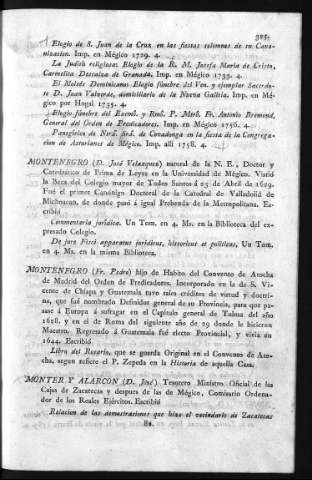 325.
Elogio de S. Juan de la Cruz en las fiestas solemnes de su Cano-
nizacion. Imp. en Mégico 1729. 4.
La Judith religiosa: Elogio de la R. M. Josefa Maria de Cristo,
Carmelita Descalza de Granada. Imp. en Mégico 1733. 4.
El Moisés Dominicano: Elogio fúnebre del Ven. y ejemplar Sacerdo-
te D. Juan Valverde, domiciliario de la Nueva Galicia. Imp. en Mé-
gico por Hogal 1735. 4.
Elogio fúnebre del Excmô. y Rmô. P. Mrô. Fr. Antonio Bremond,
General del Orden de Predicadores. Imp. en Mégico 1756. 4.
Panegírico de Ntrâ. Srâ. de Covadonga en la fiesta de la Congrega-
cion de Asturianos de Mégico. Imp. allí 1758. 4.
MONTENEGRO (D. José Velazquez) natural de la N. E., Doctor y
Catedrático de Prima de Leyes en la Universidad de Mégico. Vistió
la Beca del Colegio mayor de Todos Santos á 25 de Abril de 1629.
Fué el primer Canónigo Doctoral de la Catedral de Valladolid de
Michoacan, de donde pasó á igual Prebenda de la Metropolitana. Es-
cribió
Commentaria juridica. Un Tom. en 4. Ms. en la Biblioteca del ex-
presado Colegio.
De jure Fisci apparatus juridicus, historicus et politicus. Un Tom.
en 4. Ms. en la misma Biblioteca.
MONTENEGRO (Fr. Pedro) hijo de Habito del Convento de Atocha
de Madrid del Orden de Predicadores. Incorporado en la de S. Vi-
cente de Chiapa y Guatemala tuvo tales créditos de virtud y doctri-
na, que fué nombrado Definidor general de su Provincia, para que pa-
sase á Europa á sufragar en el Capítulo general de Tolosa del año
1628, y en el de Roma del siguiente año de 29 donde le hicieron
Maestro. Regresado á Guatemala fué electo Provincial, y vivia en
1644. Escribió
Libro del Rosario, que se guarda Original en el Convento de Ato-
cha, segun refiere el P. Zepeda en la Historia de aquella Casa.
MONTER Y ALARCON (D. José) Tesorero Ministro Oficial de las
Cajas de Zacatecas y despues de las de Mégico, Comisario Ordena-
dor de los Reales Ejércitos. Escribió
Relacion de las demostraciones que hizo el vecindario de Zacatecas